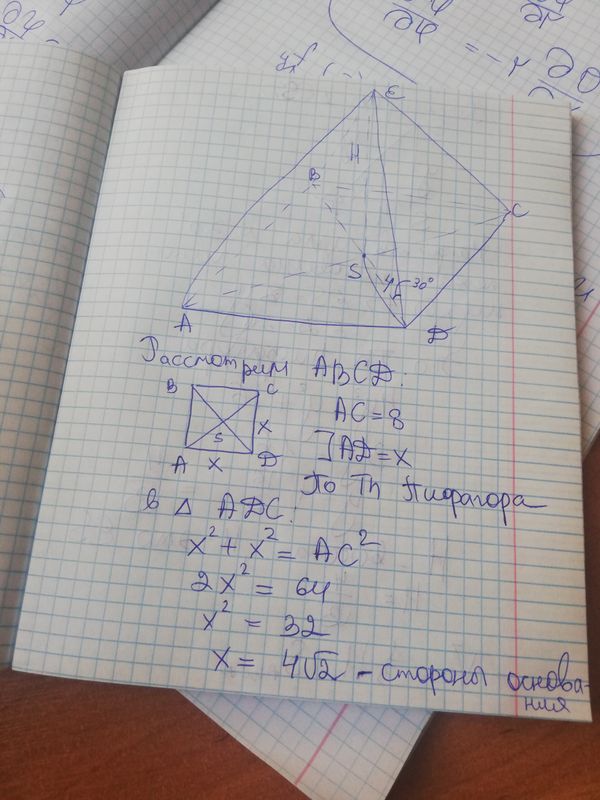 E
H
B
C
S
4
30°
A
D
Рассмотрим ABCD:
B C
AC = 8
S
x
A x D
]AD = x
По Тп Пифагора
в Δ ADC:
x² + x² = AC²
2x² = 64
x² = 32
x = 4√2 - стороны основа-
ния